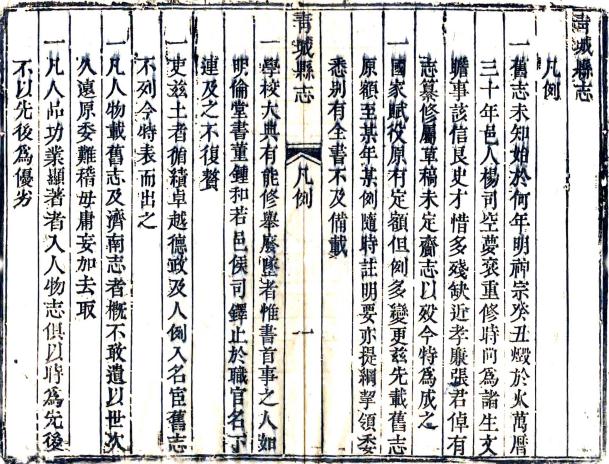 青城縣志
凡例
一舊志未知始於何年明神宗癸丑燬於火萬曆
三十年邑人楊司空夢袞重修時尚為諸生文
贍事該信良史才惜多殘缺近孝廉張君倬有
志纂修屬草稿未定齎志以歿今特為成之
一國家賦役原有定額但例多變更茲先載舊志
原額至某年某例隨時註明要亦提綱挈領委
悉別有全書不及備載
青城縣志
凡例
一
一學校大典有能修舉廢墜者惟書首事之人如
明倫堂書董鍾和若邑侯司鐸止於職官名下
連及之不復贅
一吏茲土者循績卓越德政及人例入名宦舊志
不列今特表而出之
一凡人物載舊志及濟南志者概不敢遺以世次
久遠原委難稽毋庸妄加去取
一凡人品功業顯著者入人物志俱以時為先後
不以先後為優劣